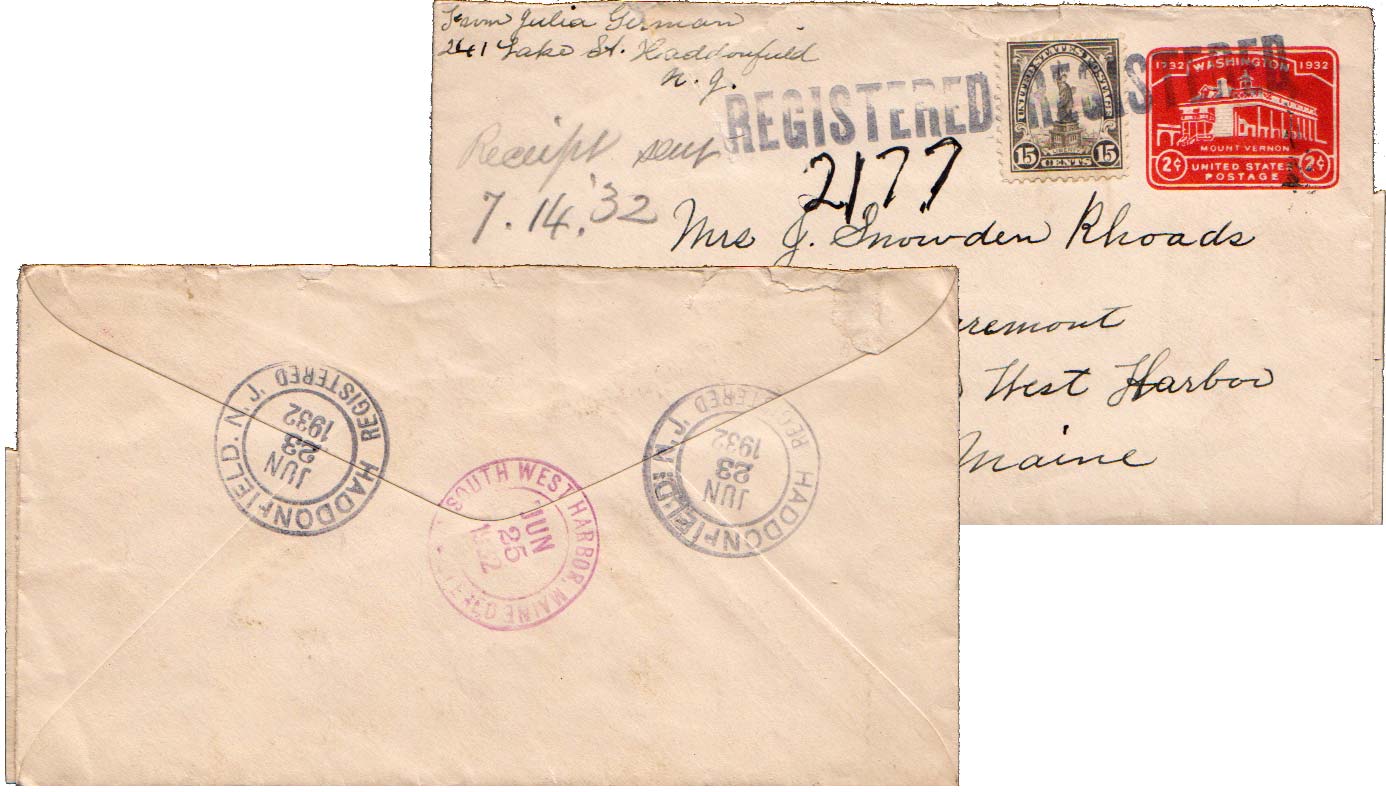 From Julia German
241 Lake St. Haddonfield
N. J.
REGISTERED REGISTERED
UNITED STATES POSTAGE
LIBERTY
15 CENTS 15
1732 WASHINGTON 1932
MOUNT VERNON
2¢ UNITED STATES 2¢
POSTAGE
Receipt sent
7.14.'32
2177
Mrs J. Snowden Rhoads
remont
West Harbor
Maine
HADDONFIELD. N. J.
REGISTERED
JUN
23
1932
SOUTH WEST HARBOR, MAINE
JUN
25
1932
HADDONFIELD. N. J.
REGISTERED
JUN
23
1932